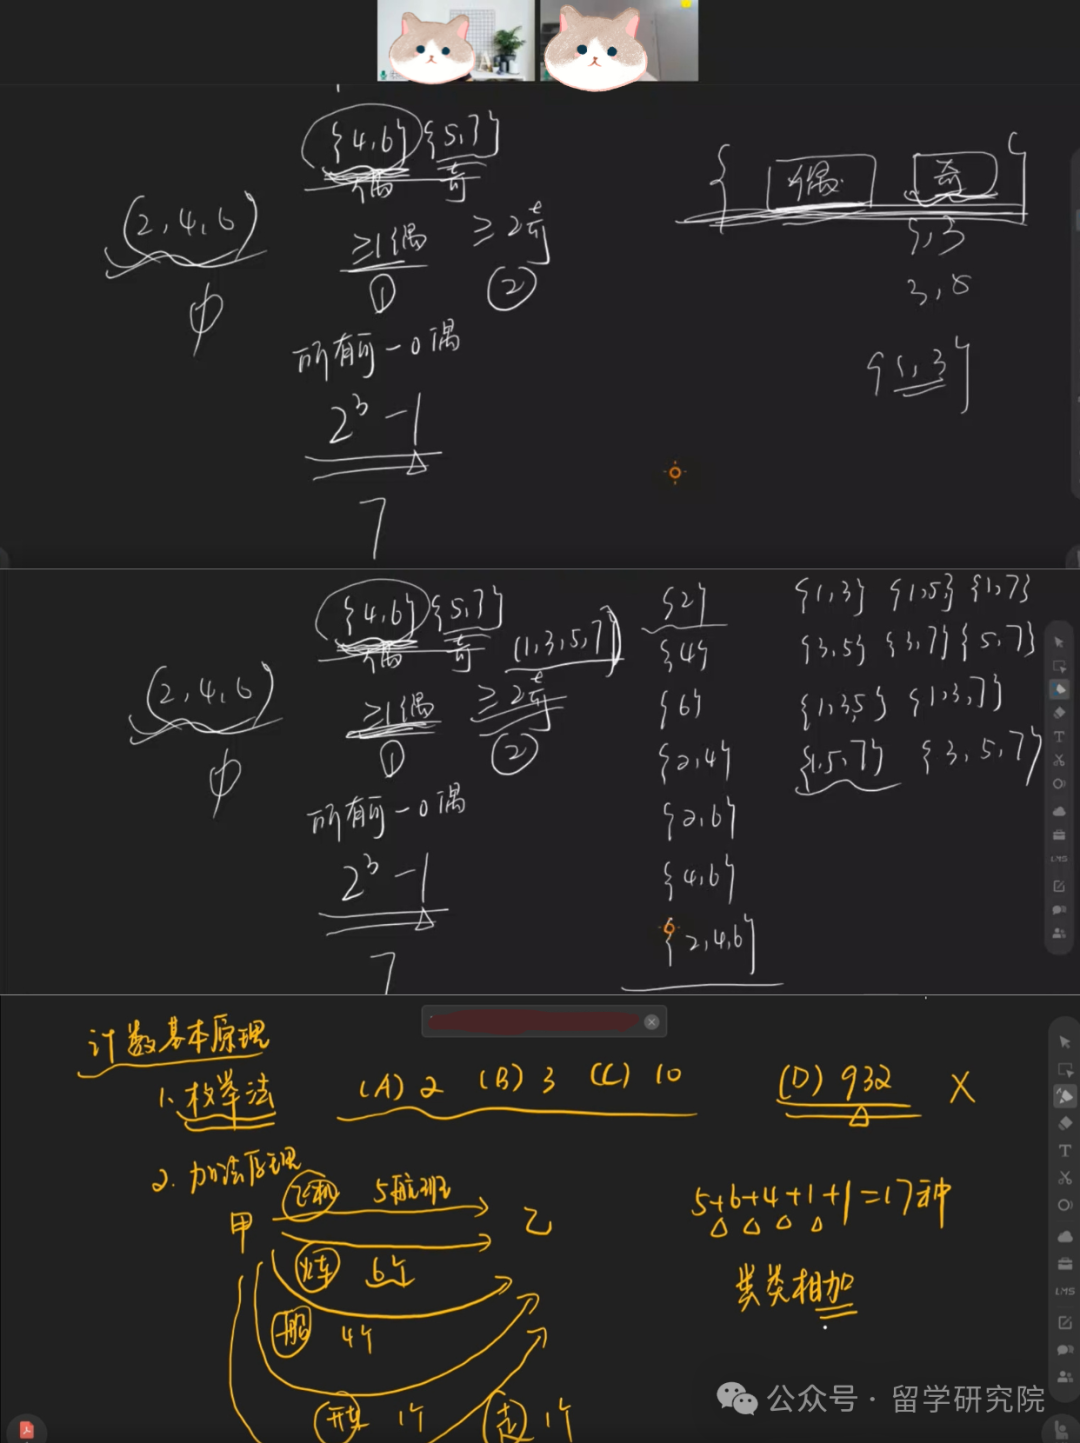 {4,6} {5,7}
偶 奇
(2,4,6)
≥1偶 ≥2奇
① ②
所有可-0偶
2³-1
7
{ 偶 奇 }
{1,3}
{4,6} {5,7}
偶 奇 (1,3,5,7)
(2,4,6)
≥1偶 ≥2奇
① ②
所有可-0偶
2³-1
7
{2}
{4}
{6}
{2,4}
{2,6}
{4,6}
{2,4,6}
{1,3} {1,5} {1,7}
{3,5} {3,7} {5,7}
{1,3,5} {1,3,7}
{1,5,7} {3,5,7}
计数基本原理
1.枚举法 (A)2 (B)3 (C)10 (D)932 X
2.加法原理
飞机 5航班
甲 乙
火车 6个
船 4个
开车 1个 走 1个
5+6+4+1+1=17种
类类相加
LMS
LMS
公众号·留学研究院